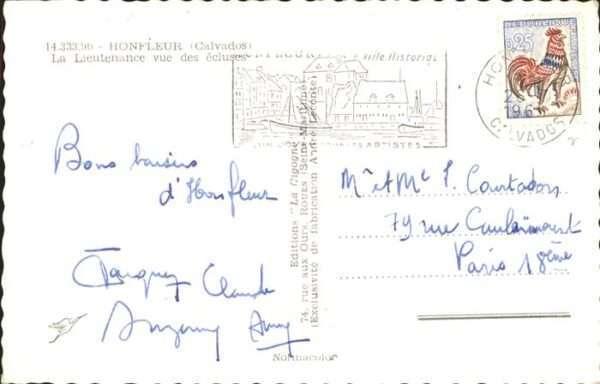 14.333.90 - HONFLEUR (Calvados)
La Lieutenance vue des écluses
Ville Historique
ARTISTES
0,25
CALVADOS
Bons baisers
d'Honfleur
Claude
Editions "La Cigogne"
74, rue aux Ours, Rouen (Seine-Maritime)
(Exclusivité de fabrication André Leconte)
Mr et Me P. Courtadon
79 rue Caulaincourt
Paris 18ème
Normacolor